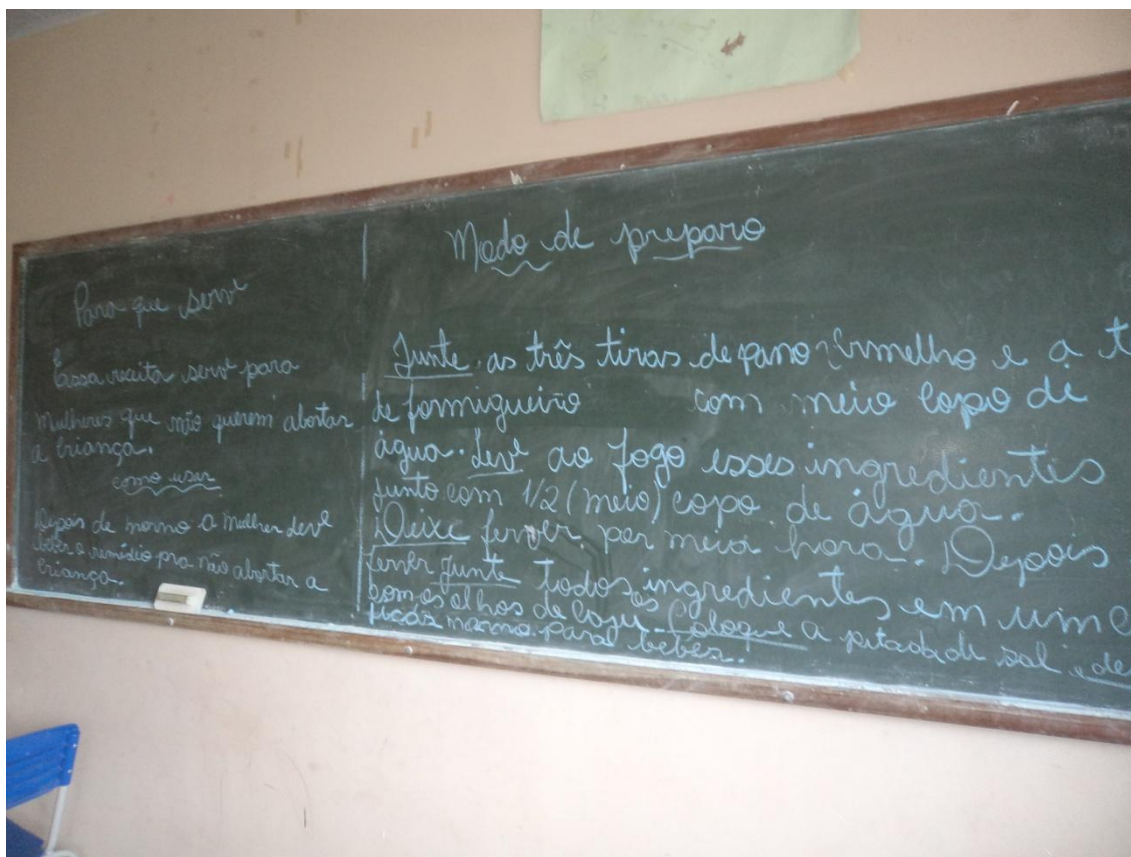 Para que serve
Essa receita serve para
mulheres que não querem abortar
a criança.
como usar
Depois de morno a mulher deve
beber o remédio pra não abortar a
criança.
Modo de preparo
Junte as três tiras de pano vermelho e a t
de formigueiro com meio copo de
água. Leve ao fogo esses ingredientes
junto com 1/2 (meio) copo de água.
Deixe ferver por meia hora. Depois
ferver junte todos os ingredientes em um c
com os olhos de caju. Coloque a pitada de sal, de
ficar morno para beber.